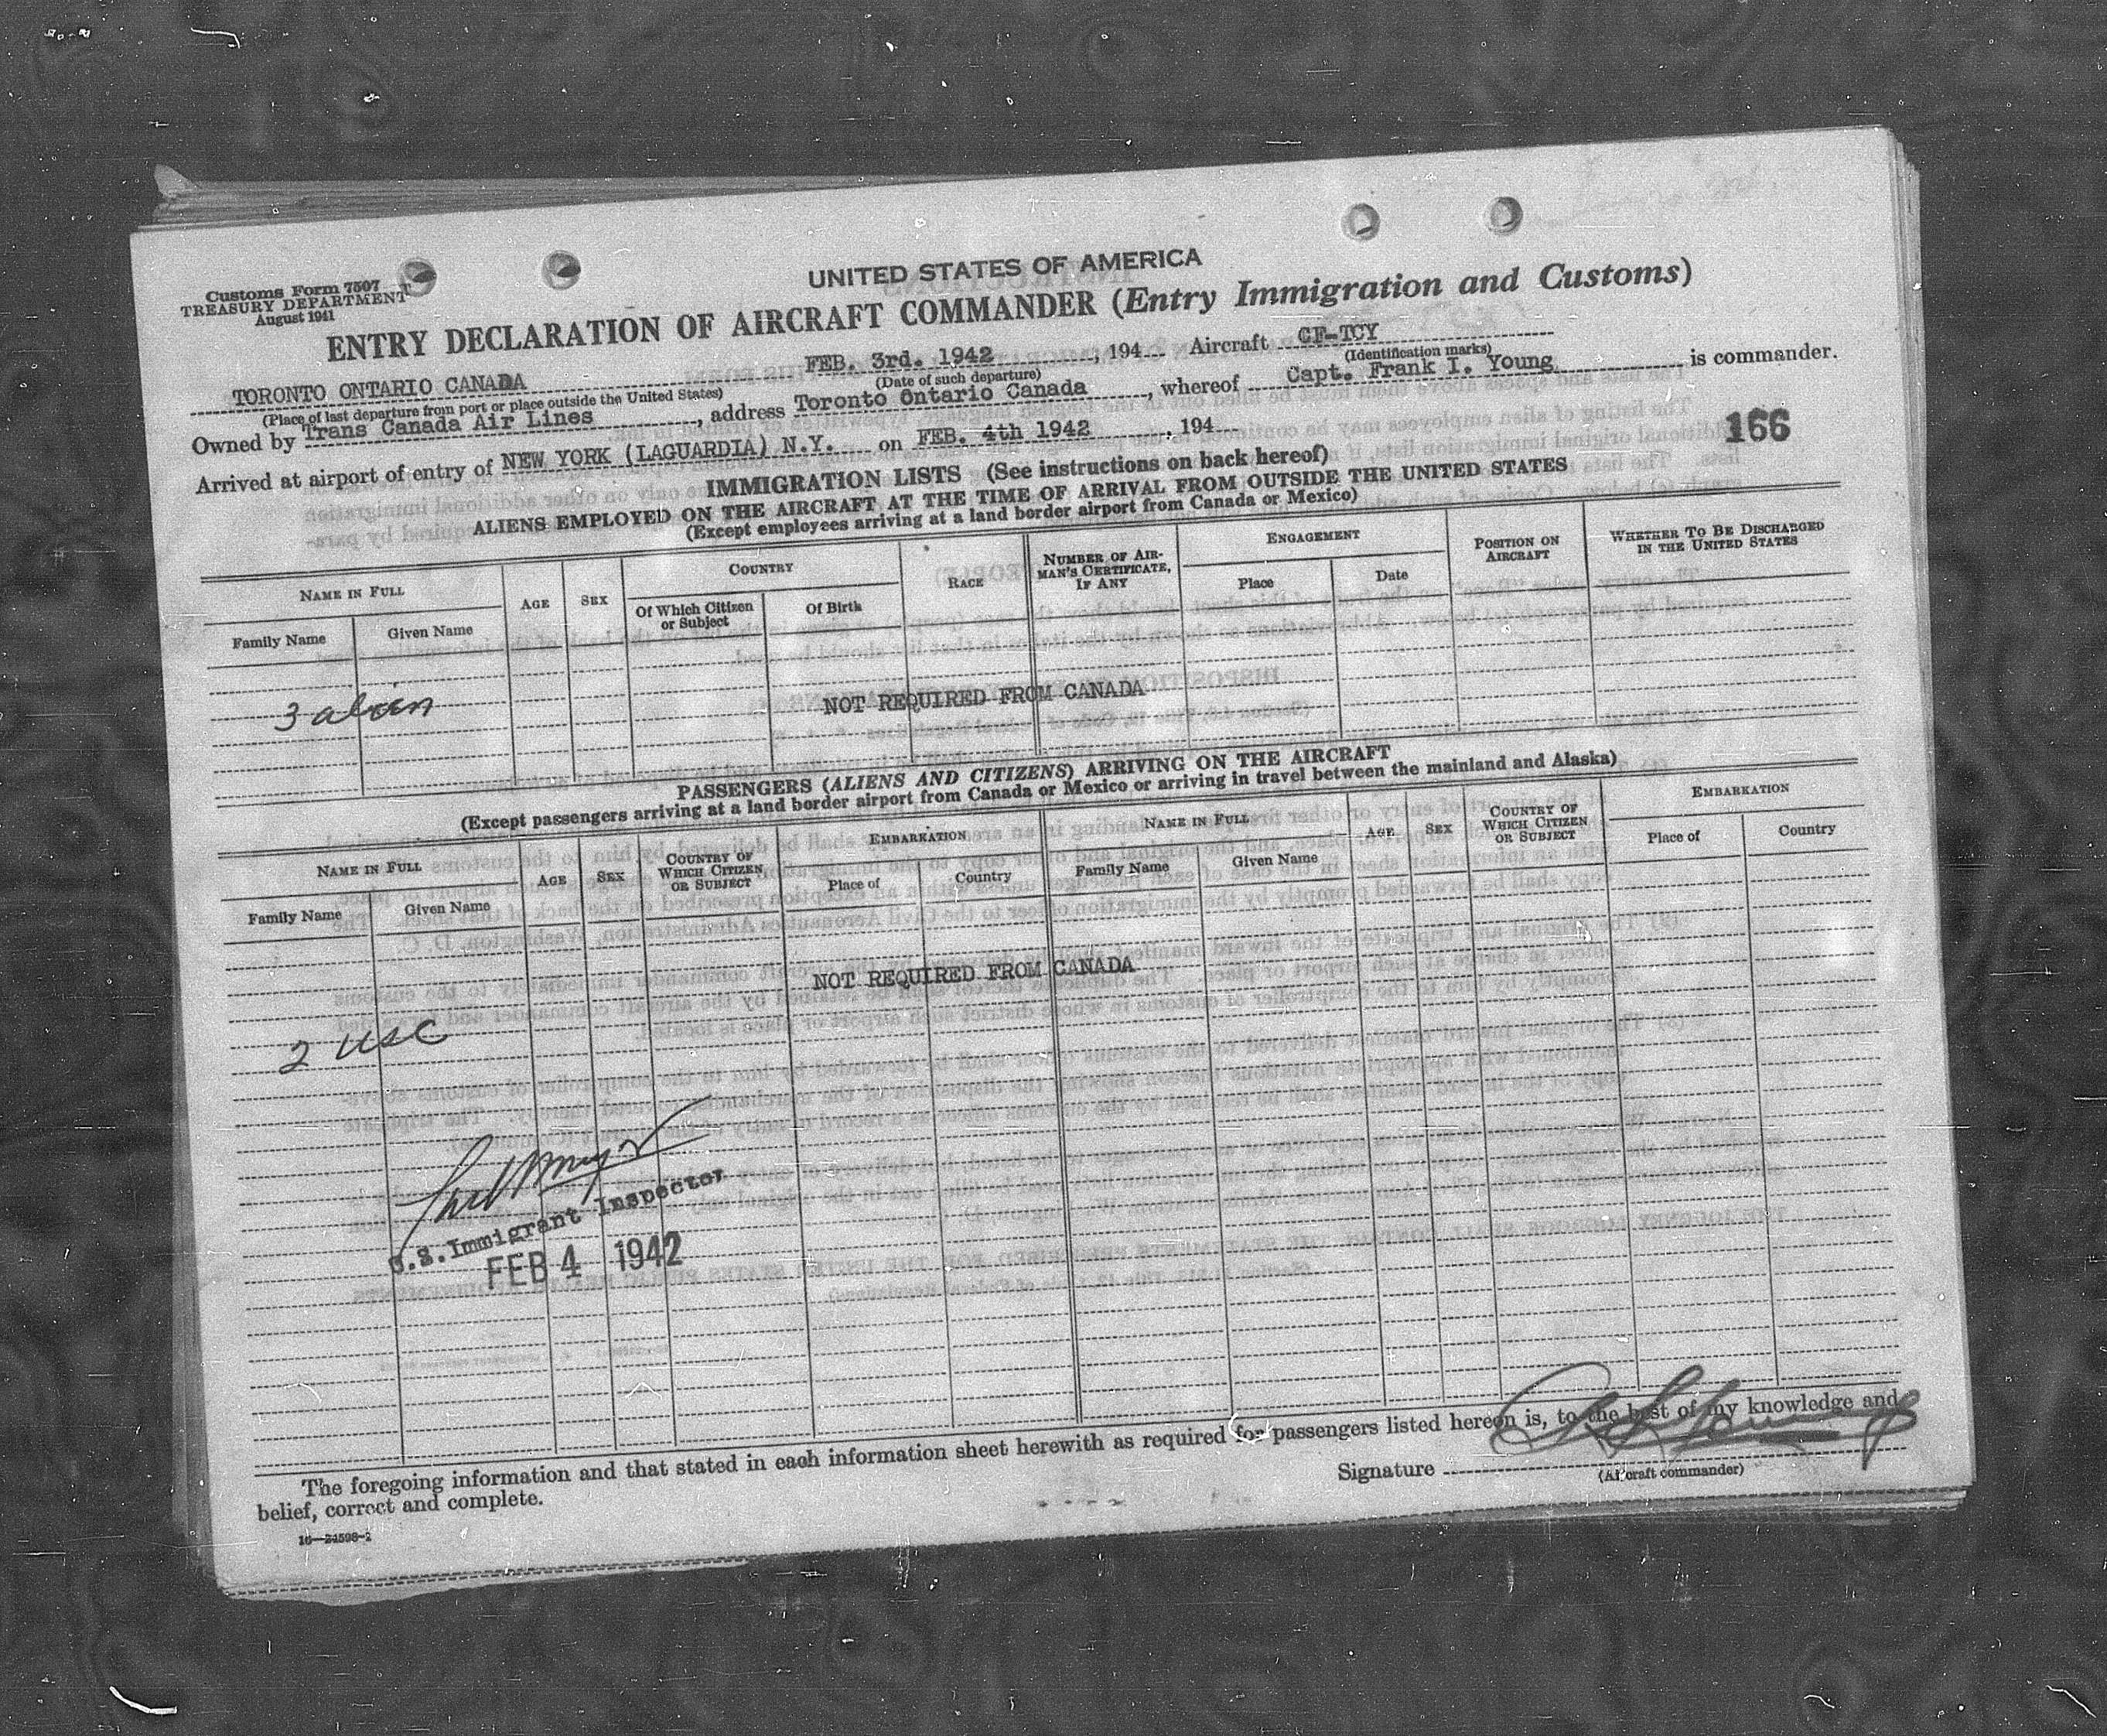 Customs Form 7507
TREASURY DEPARTMENT
August 1941
UNITED STATES OF AMERICA
ENTRY DECLARATION OF AIRCRAFT COMMANDER (Entry Immigration and Customs)
TORONTO ONTARIO CANADA FEB. 3rd. 1942, 194 Aircraft CF-TCY
(Place of last departure from port or place outside the United States) (Date of such departure) (Identification marks)
Owned by Trans Canada Air Lines, address Toronto Ontario Canada, whereof Capt. Frank I. Young is commander.
Arrived at airport of entry of NEW YORK (LAGUARDIA) N.Y. on FEB. 4th 1942, 194
166
IMMIGRATION LISTS (See instructions on back hereof)
ALIENS EMPLOYED ON THE AIRCRAFT AT THE TIME OF ARRIVAL FROM OUTSIDE THE UNITED STATES
(Except employees arriving at a land border airport from Canada or Mexico)
NAME IN FULL
Family Name
Given Name
AGE
SEX
COUNTRY
Of Which Citizen or Subject
Of Birth
RACE
NUMBER OF AIRMAN'S CERTIFICATE, IF ANY
ENGAGEMENT
Place
Date
POSITION ON AIRCRAFT
WHETHER TO BE DISCHARGED IN THE UNITED STATES
3 alien
NOT REQUIRED FROM CANADA
PASSENGERS (ALIENS AND CITIZENS) ARRIVING ON THE AIRCRAFT
(Except passengers arriving at a land border airport from Canada or Mexico or arriving in travel between the mainland and Alaska)
NAME IN FULL
Family Name
Given Name
AGE
SEX
COUNTRY OF WHICH CITIZEN OR SUBJECT
EMBARKATION
Place of
Country
NAME IN FULL
Family Name
Given Name
AGE
SEX
COUNTRY OF WHICH CITIZEN OR SUBJECT
EMBARKATION
Place of
Country
NOT REQUIRED FROM CANADA
2 USC
U.S. Immigrant Inspector
FEB 4 1942
The foregoing information and that stated in each information sheet herewith as required for passengers listed hereon is, to the best of my knowledge and
belief, correct and complete.
Signature
(Aircraft commander)
16—24598-2